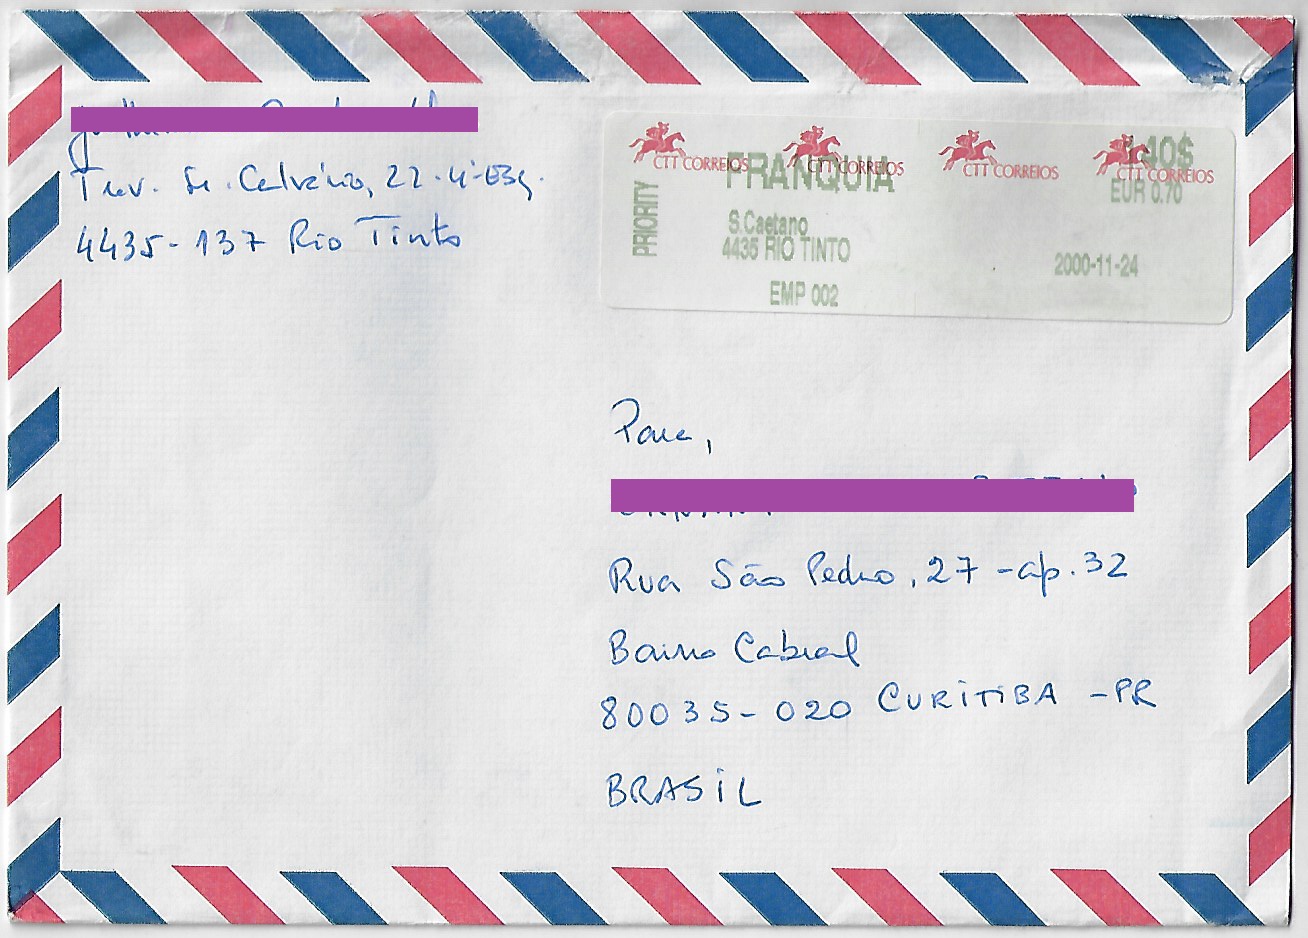 Trav. Sr. Calvário, 22-4º Esq.
4435-137 Rio Tinto
CTT CORREIOS CTT CORREIOS CTT CORREIOS CTT CORREIOS
FRANQUIA 140$
EUR 0.70
PRIORITY
S.Caetano
4435 RIO TINTO
2000-11-24
EMP 002
Para,
Rua São Pedro, 27 - ap. 32
Bairro Cabral
80035-020 CURITIBA - PR
BRASIL